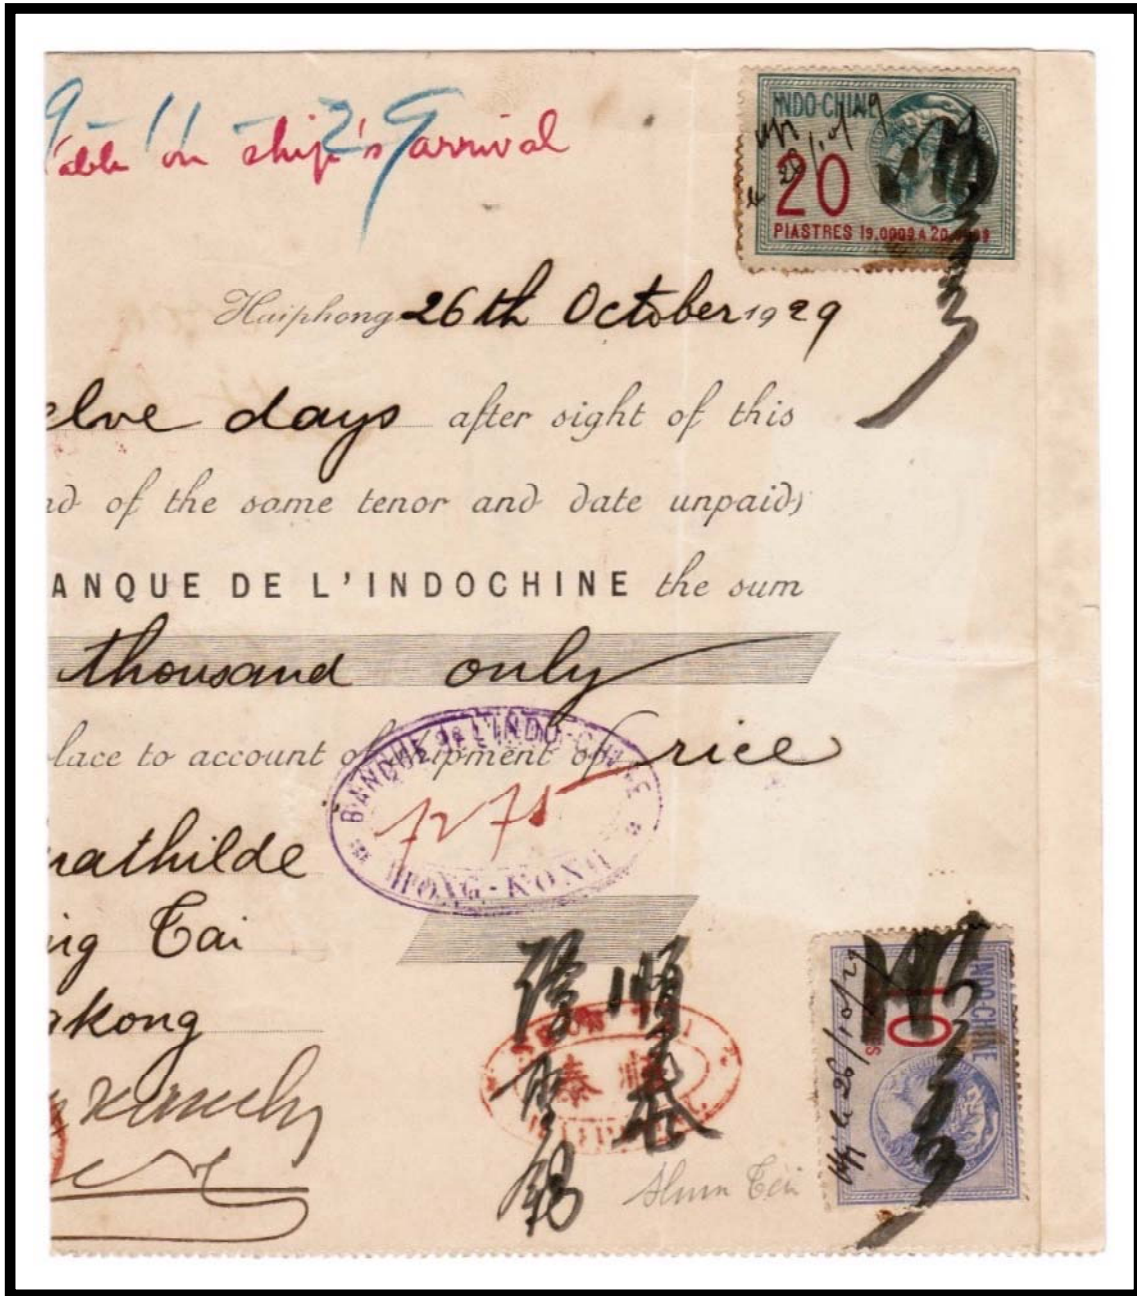 9-11-29
able on ship's arrival
INDO-CHINE
20
PIASTRES 19.000$ A 20.000$
Haiphong 26th October 1929
elve days after sight of this
nd of the same tenor and date unpaid)
ANQUE DE L'INDOCHINE the sum
thousand only
lace to account of shipment of rice
BANQUE de L'INDO-CHINE
7275
HONG-KONG
athilde
ng Tai
kong
順泰
順泰
Shun Tai
INDO-CHINE
26/10/29